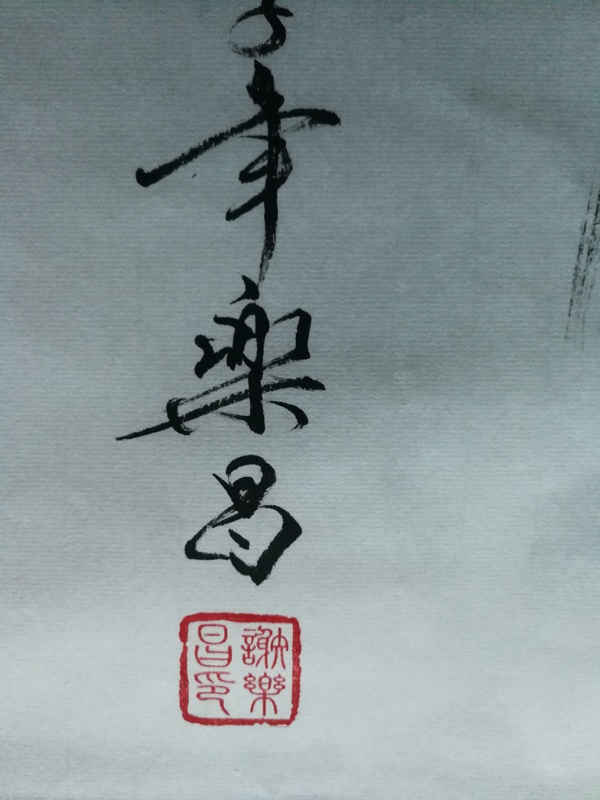 年樂昌
謝樂
昌印